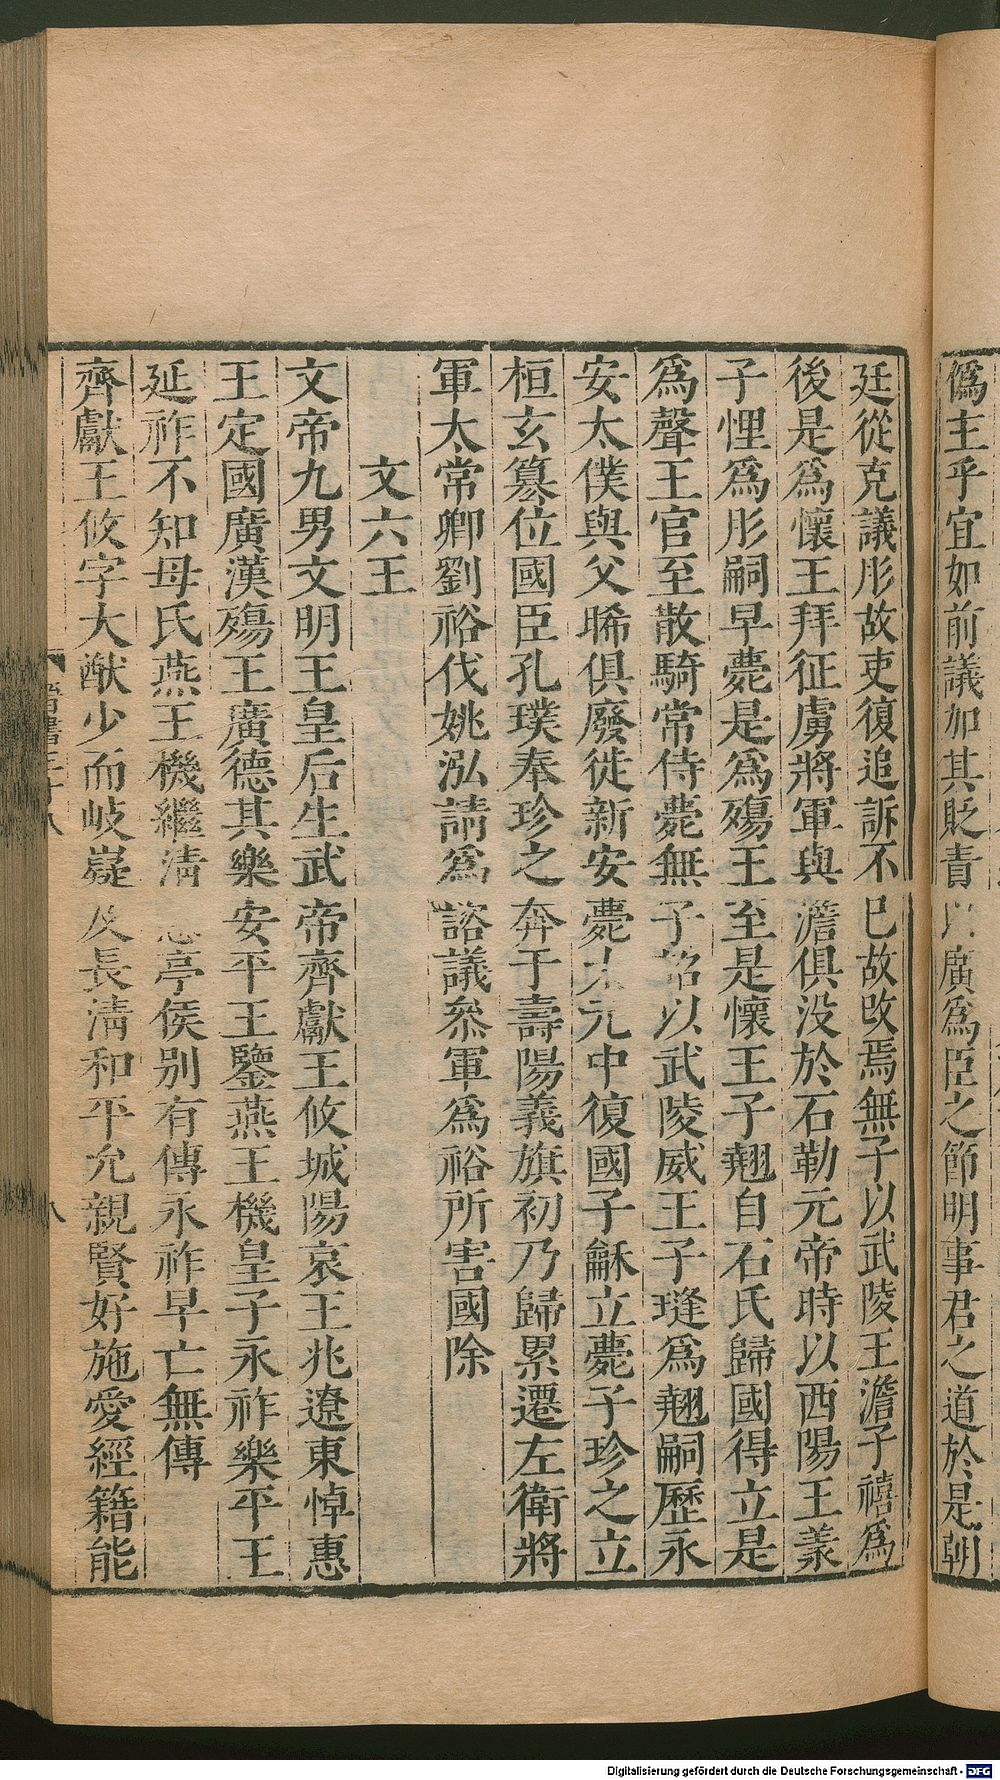 僞主乎宜如前議加其貶責以廣爲臣之節明事君之道於是朝
廷從克議肜故吏復追訴不已故改焉無子以武陵王澹子禧爲
後是爲懷王拜征虜將軍與澹俱没於石勒元帝時以西陽王羕
子悝爲肜嗣早薨是爲殤王至是懷王子翹自石氏歸國得立是
爲聲王官至散騎常侍薨無子詔以武陵威王子㻵爲翹嗣歷永
安太僕與父晞俱廢徙新安薨太元中復國子龢立薨子珍之立
桓玄篡位國臣孔璞奉珍之奔于壽陽義旗初乃歸累遷左衛將
軍太常卿劉裕伐姚泓請爲諮議叅軍爲裕所害國除
文六王
文帝九男文明王皇后生武帝齊獻王攸城陽哀王兆遼東悼惠
王定國廣漢殤王廣德其樂安平王鑒燕王機皇子永祚樂平王
延祚不知母氏燕王機繼淸惠亭侯别有傳永祚早亡無傳
齊獻王攸字大猷少而岐嶷及長淸和平允親賢好施愛經籍能
晉書三十八
八
Digitalisierung gefördert durch die Deutsche Forschungsgemeinschaft - DFG